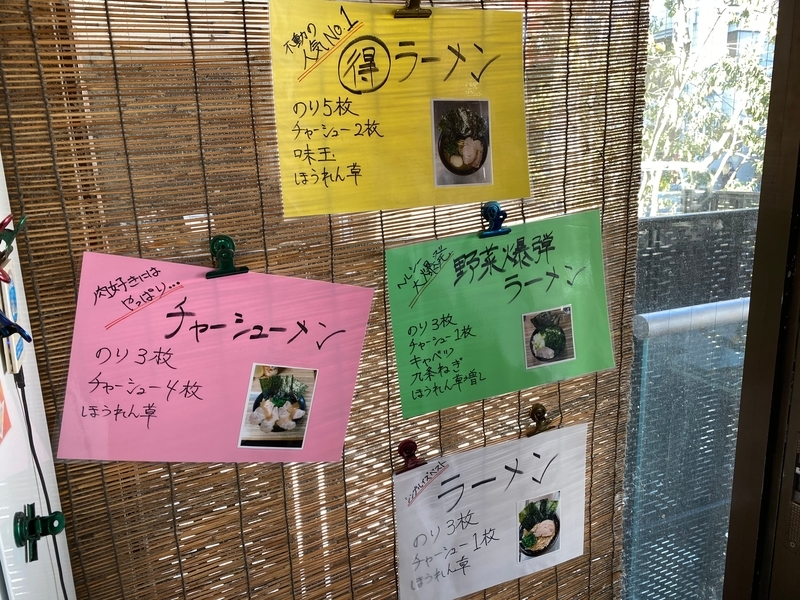 不動の
人気No.1
得ラーメン
のり5枚
チャーシュー2枚
味玉
ほうれん草
肉好きには
やっぱり...
チャーシューメン
のり3枚
チャーシュー4枚
ほうれん草
大爆発
野菜爆弾
ラーメン
のり3枚
チャーシュー1枚
キャベツ
九条ねぎ
ほうれん草増し
シンプルイズベスト
ラーメン
のり3枚
チャーシュー1枚
ほうれん草